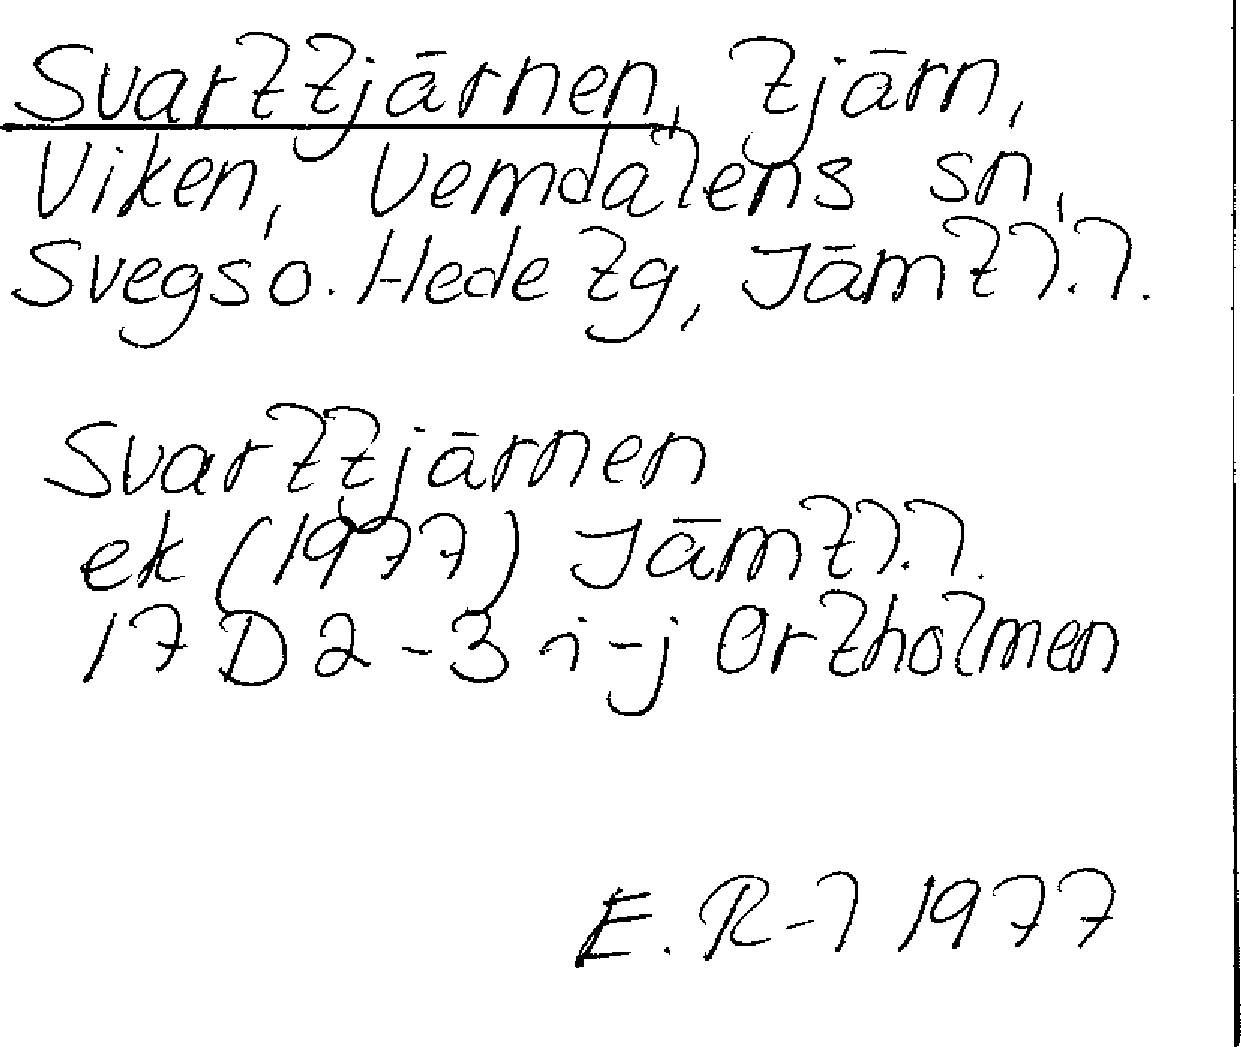 Svarttjärnen, tjärn,
Viken, Vemdalens sn,
Svegs o. Hede tg, Jämtl. l.
Svarttjärnen
ek (1977) Jämtl. l.
17 D 2-3 i-j Ortholmen
E. R-l 1977